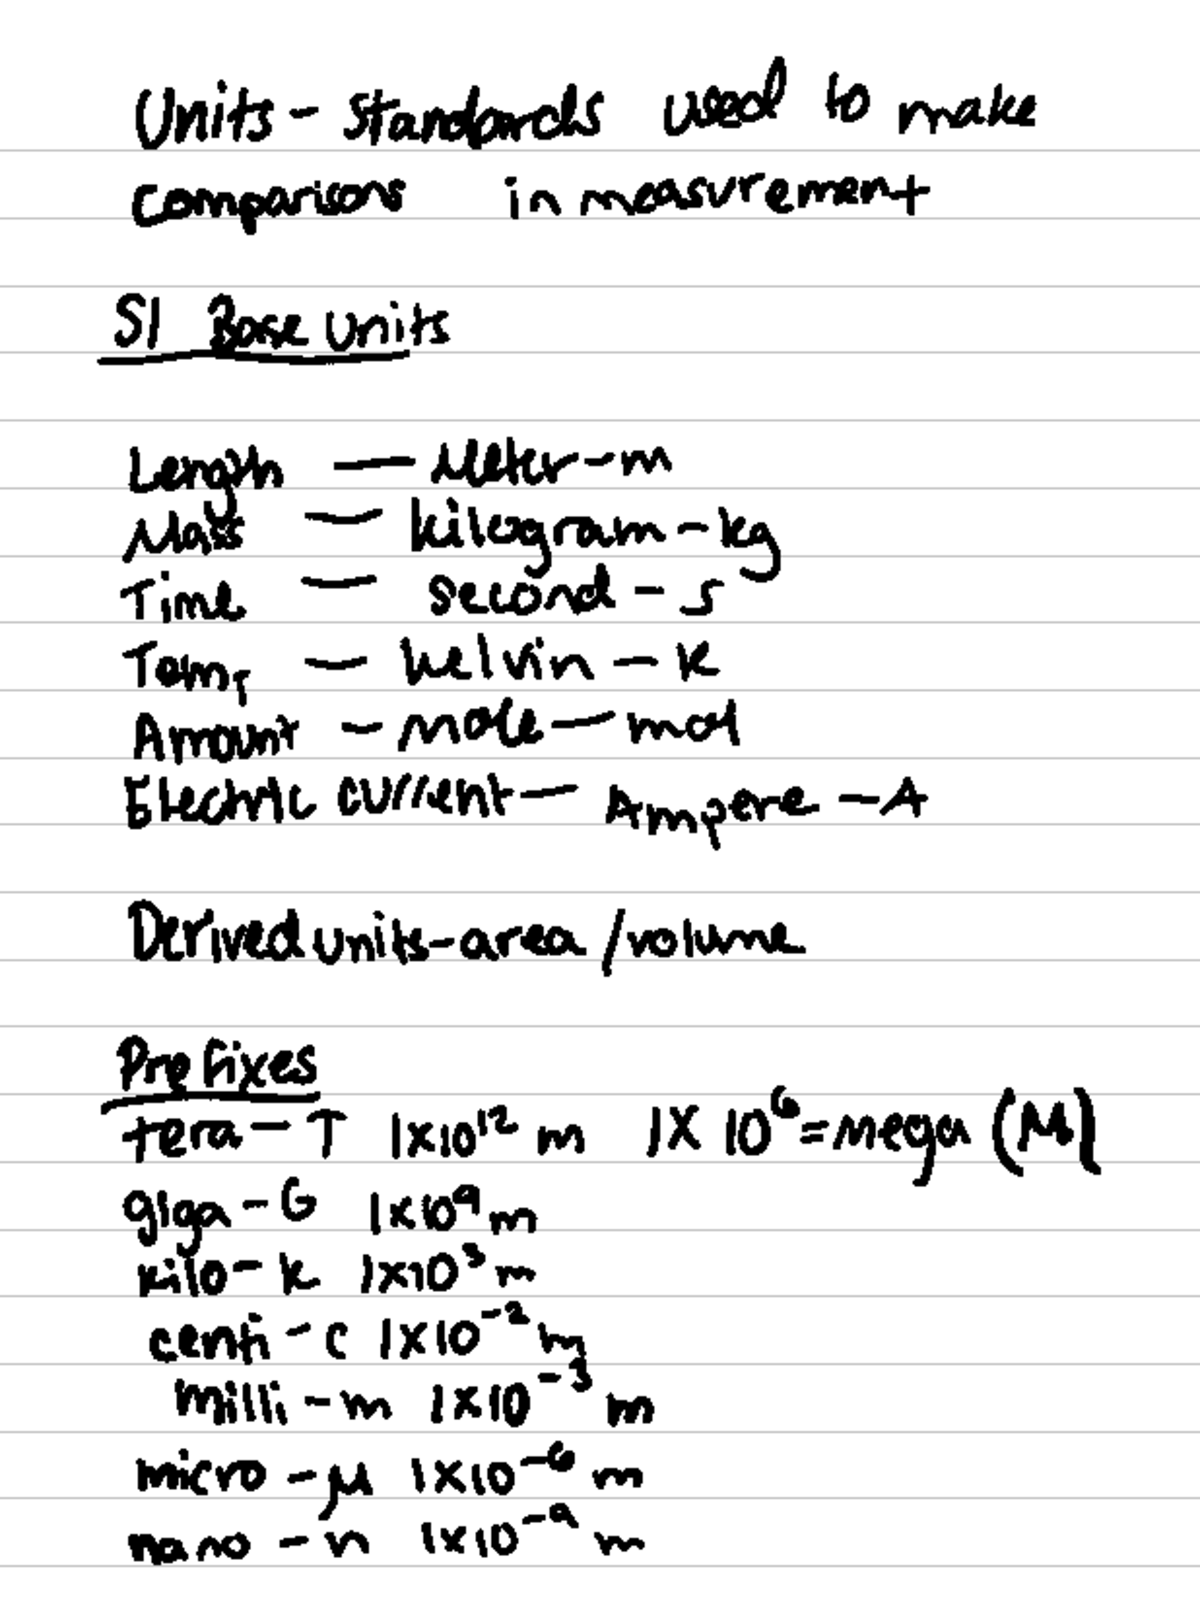 Units - standards used to make
comparisons in measurement
SI Base units
Length — Meter - m
Mass — kilogram - kg
Time — second - s
Temp — kelvin - K
Amount - mole - mol
Electric current - Ampere - A
Derived units - area / volume
Prefixes
tera - T 1x10¹² m 1X 10⁶ = mega (M)
giga - G 1x10⁹ m
kilo - k 1x10³ m
centi - c 1x10⁻² m
milli - m 1x10⁻³ m
micro - μ 1x10⁻⁶ m
nano - n 1x10⁻⁹ m